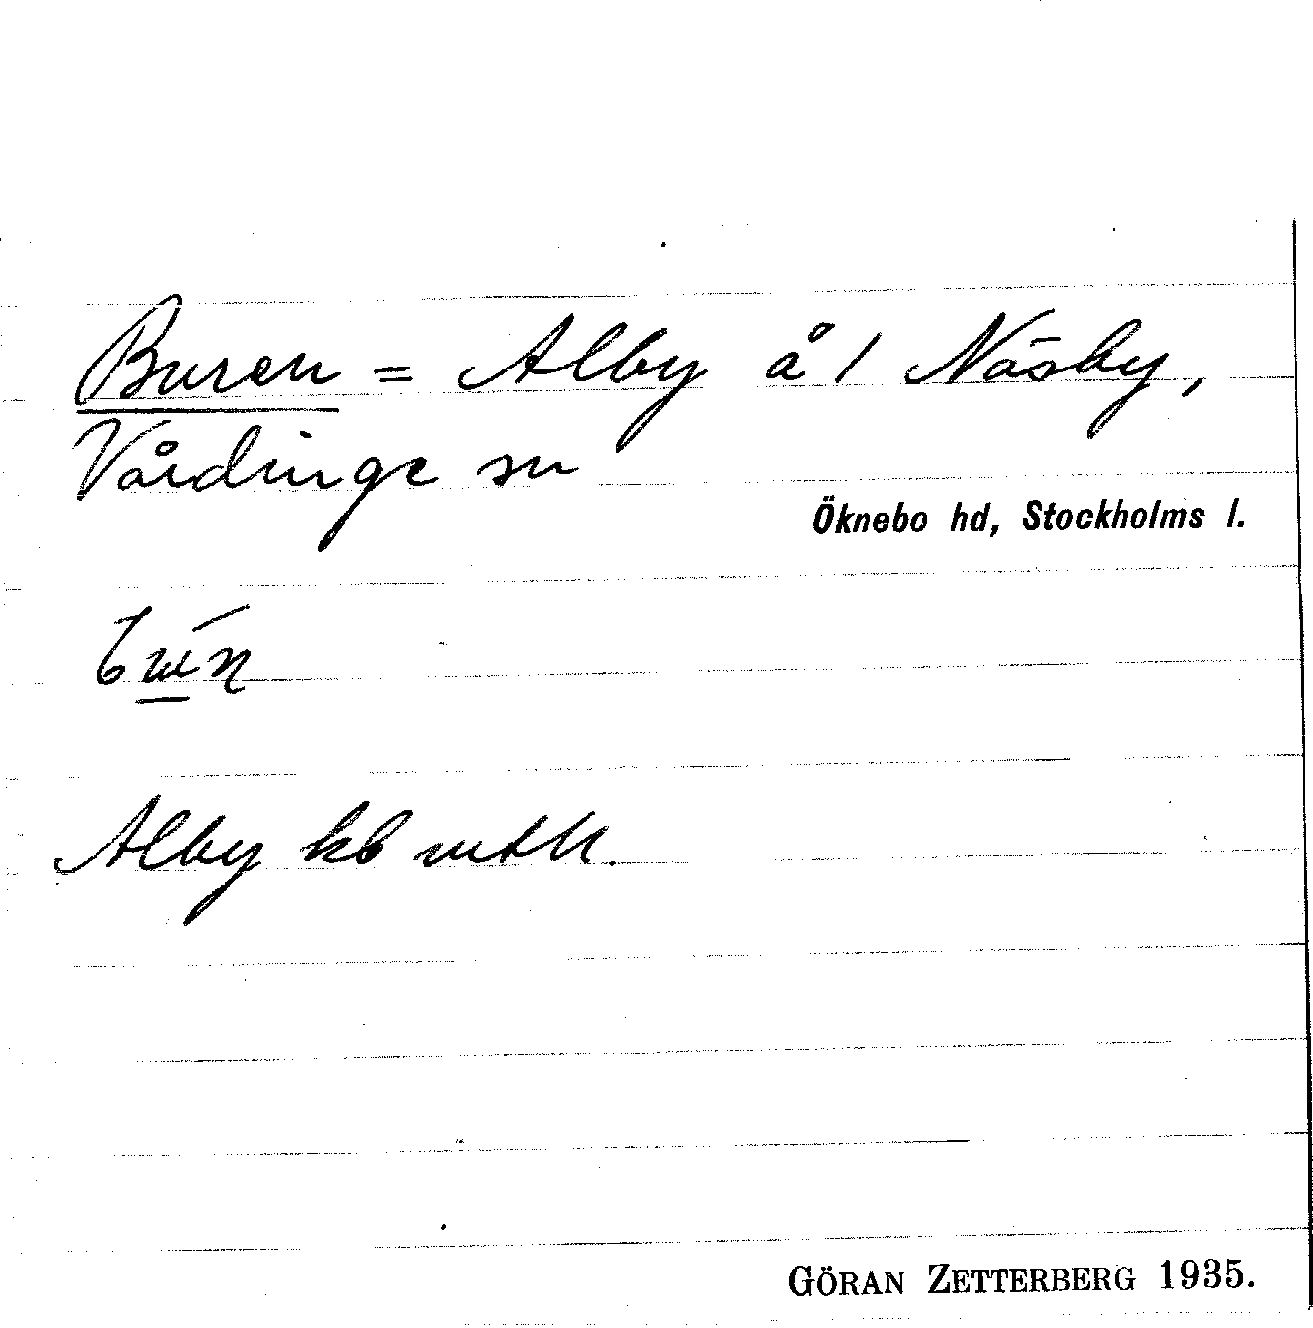 Buren = Alby å / Näsby,
Vårdinge sn
Öknebo hd, Stockholms l.
Alby kb
GÖRAN ZETTERBERG 1935.